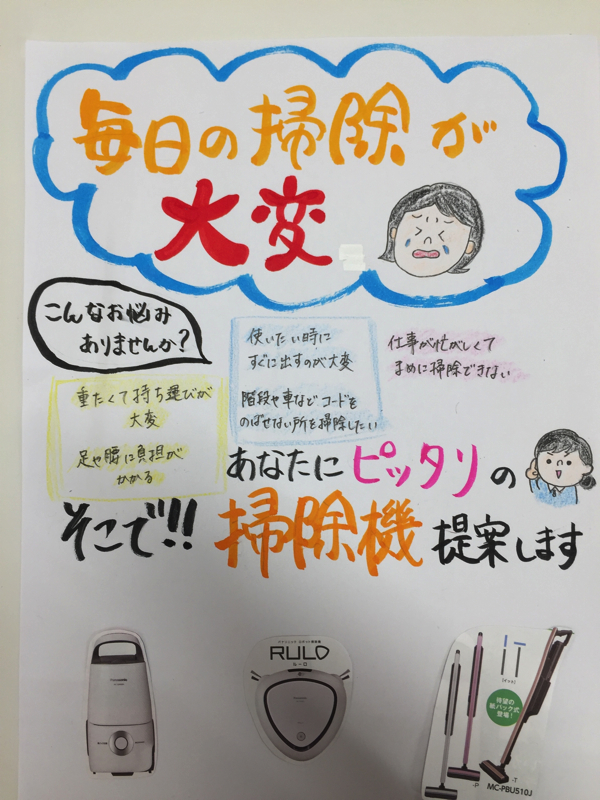 毎日の掃除が
大変
こんなお悩み
ありませんか?
使いたい時に
すぐに出すのが大変
階段や車などコードを
のばせない所を掃除したい
仕事が忙がしくて
まめに掃除できない
重たくて持ち運びが
大変
足や腰に負担が
かかる
あなたにピッタリの
そこで!!掃除機提案します
Panasonic
RULO
ルーロ
iT
[イット]
待望の
紙パック式
登場!
-P
-T
MC-PBU510J